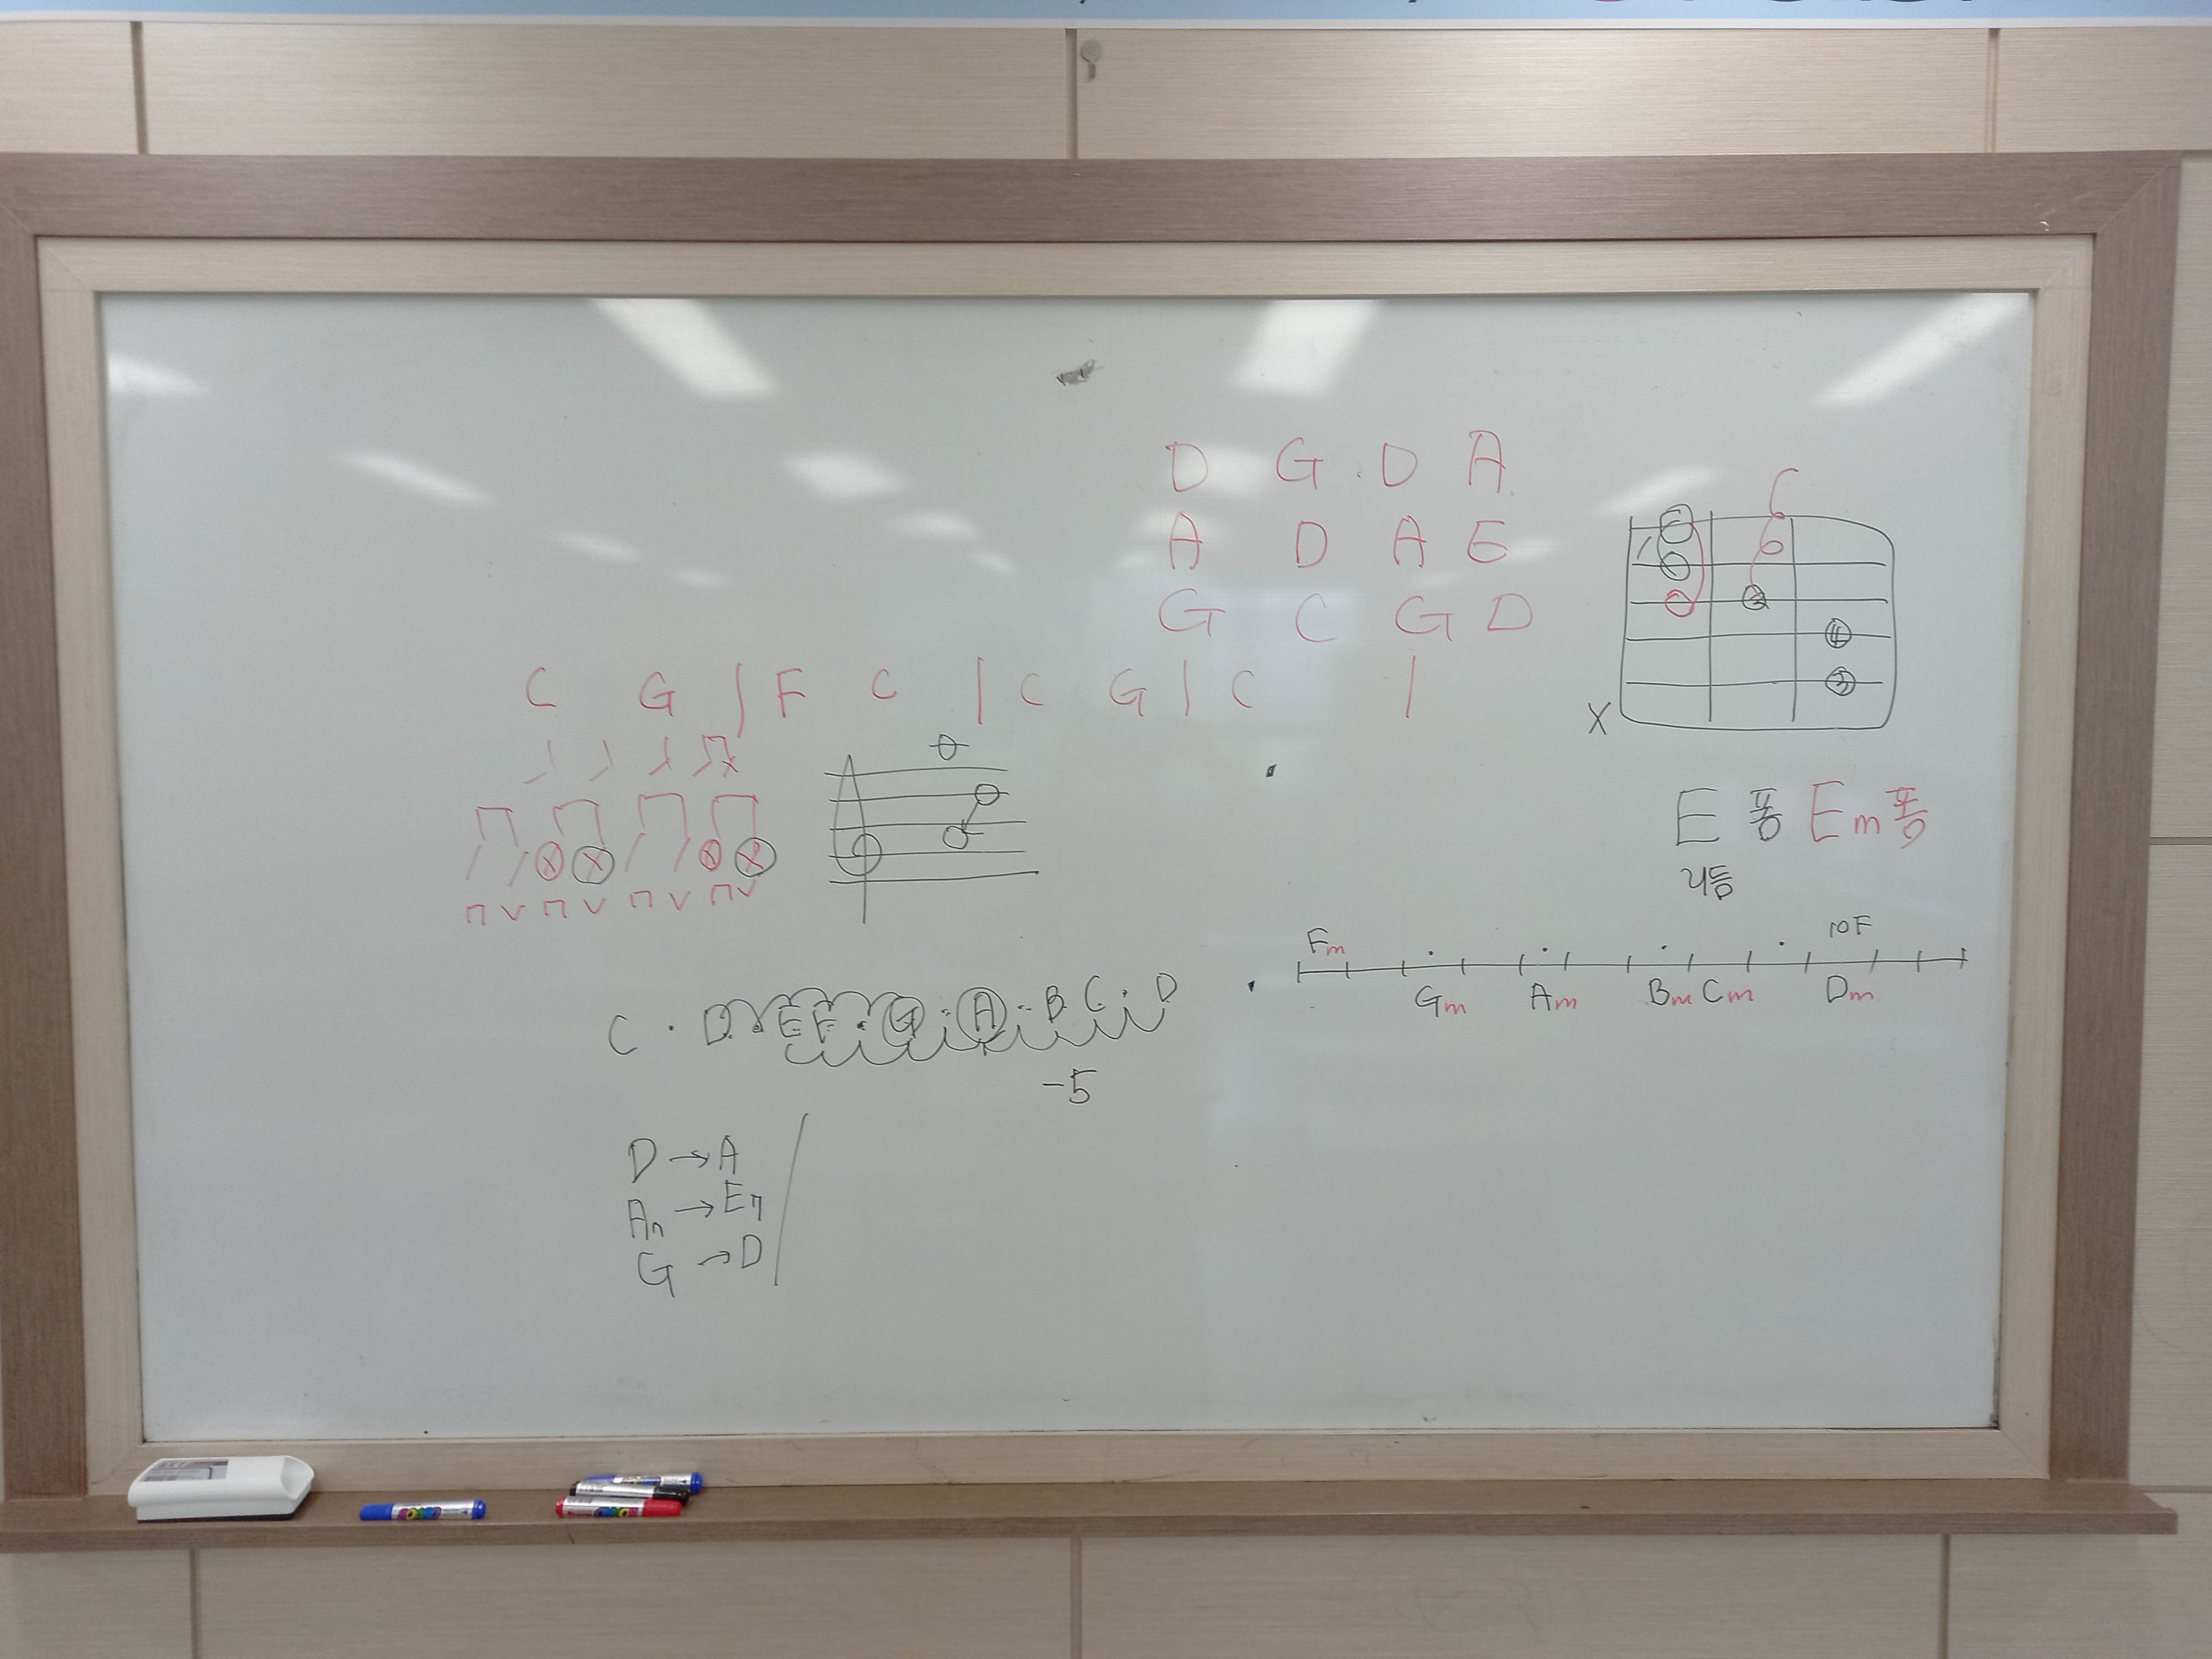 D G D A
A D A E
G C G D
C G | F C | C G | C |
X
E 폼 Em폼
리듬
10F
Fm
Gm Am Bm Cm Dm
C · D · E F · G · A · B C · D
-5
D → A
Am → Em
G → D